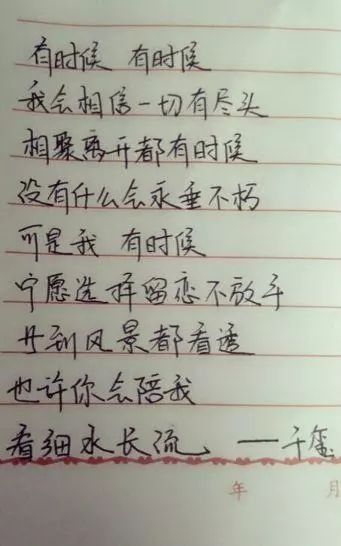 有时候 有时候
我会相信一切有尽头
相聚离开都有时候
没有什么会永垂不朽
可是我 有时候
宁愿选择留恋不放手
等到风景都看透
也许你会陪我
看细水长流。 ——千玺
年 月